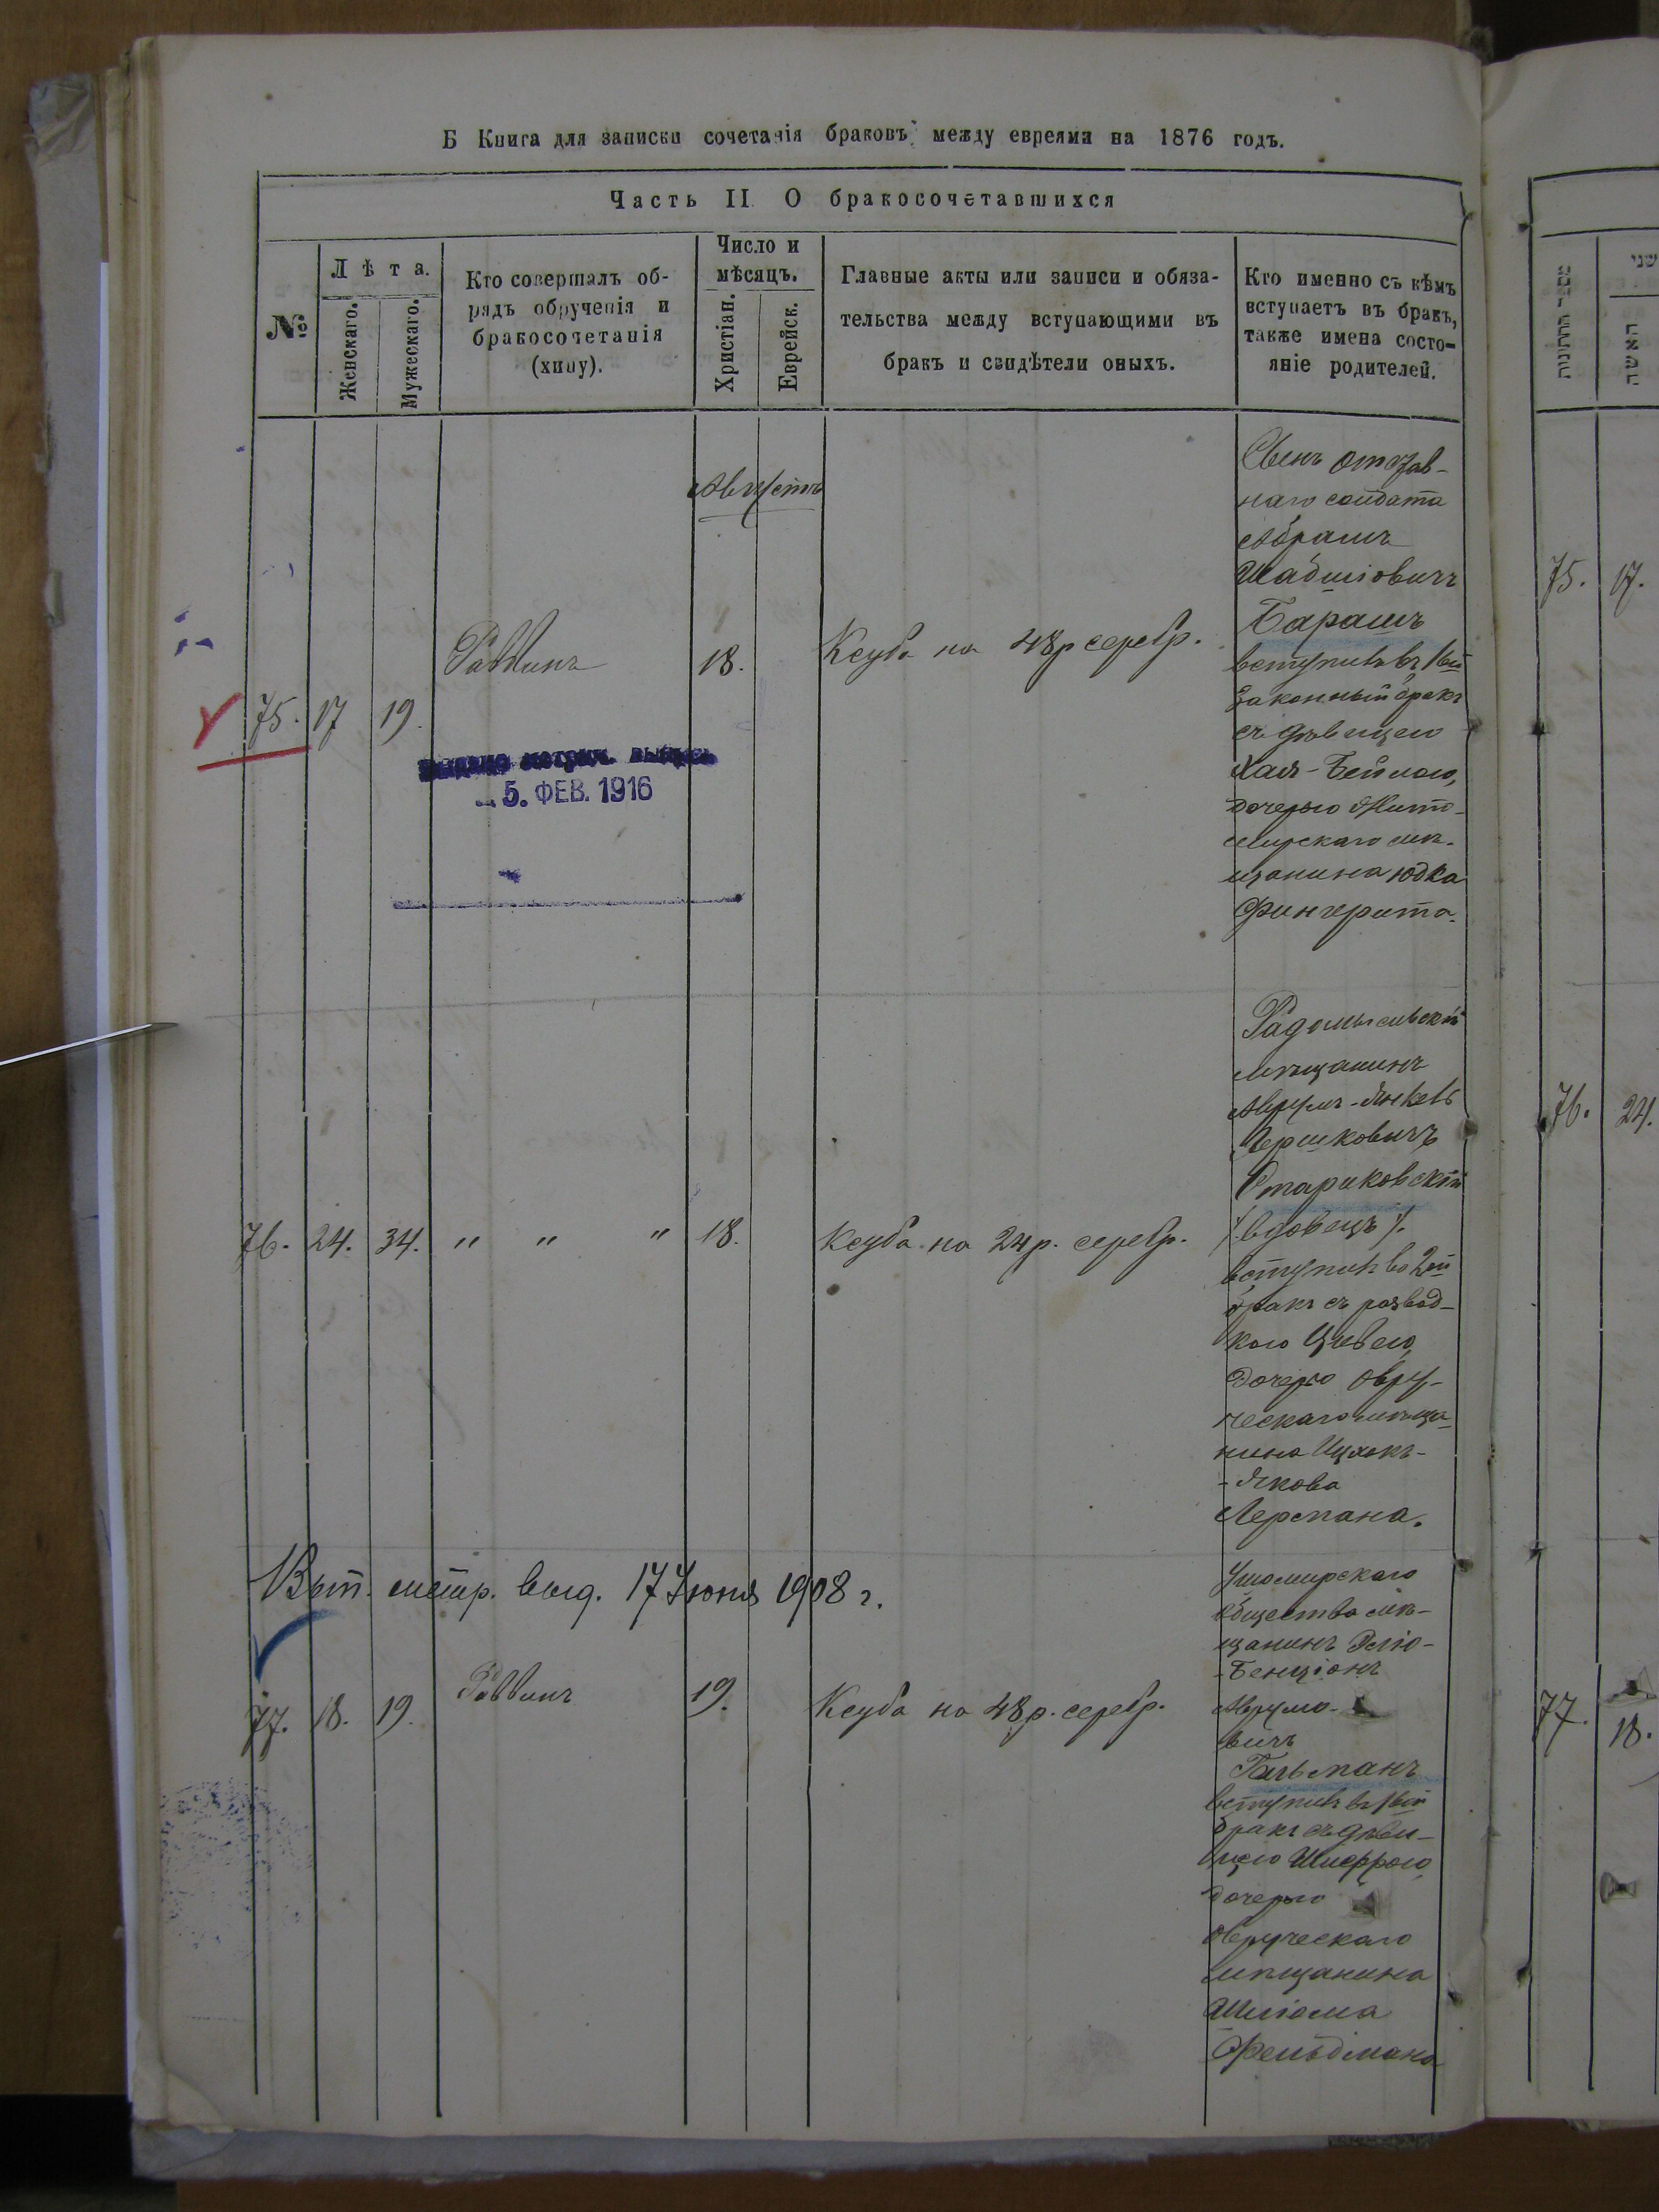 Б Книга для записки сочетанія браковъ между евреями на 1876 годъ.
Часть II О бракосочетавшихся
№
Лѣта.
Женскаго.
Мужескаго.
Кто совершалъ об-
рядъ обрученія и
бракосочетанія
(хипу).
Число и
мѣсяцъ.
Христіан.
Еврейск.
Главные акты или записи и обяза-
тельства между вступающими въ
бракъ и свидѣтели оныхъ.
Кто именно съ кѣмъ
вступаетъ въ бракъ,
также имена состо-
яніе родителей.
Августъ
75. 17 19.
Раввинъ
18.
Ксуба на 48р серебр.
Сынъ отстав-
наго солдата
Абрамъ
Шабшіовичъ
Барашъ
вступилъ въ 1ый
законный бракъ
съ дѣвицею
Хая-Бейлою,
дочерью Жито-
мирскаго мѣ-
щанина Юдка
Фингерита.
5. ФЕВ. 1916
76. 24. 34. " " " 18.
Ксуба на 24р. серебр.
Радомысльскій
мѣщанинъ
Аврумъ-Янкевъ
Гершковичъ
Стариковскій
/вдовецъ/.
вступилъ во 2ой
бракъ съ развод-
кою Цивею,
дочерью Овру-
ческаго мѣща-
нина Ицхокъ-
-Якова
Лермана.
Вып. метр. выд. 17 Июня 1908 г.
77. 18. 19.
Раввинъ
19.
Ксуба на 48р. серебр.
Ушомирскаго
общества мѣ-
щанинъ
-Бенціонъ
Аврумо-
вичъ
Гальманъ
вступилъ въ 1ый
бракъ съ дѣви-
цею Шифрою,
дочерью
Овруческаго
мѣщанина
Шліома
Фельдмана
מספר החתונות
שני
האשה
75. 17.
76. 24.
77. 18.